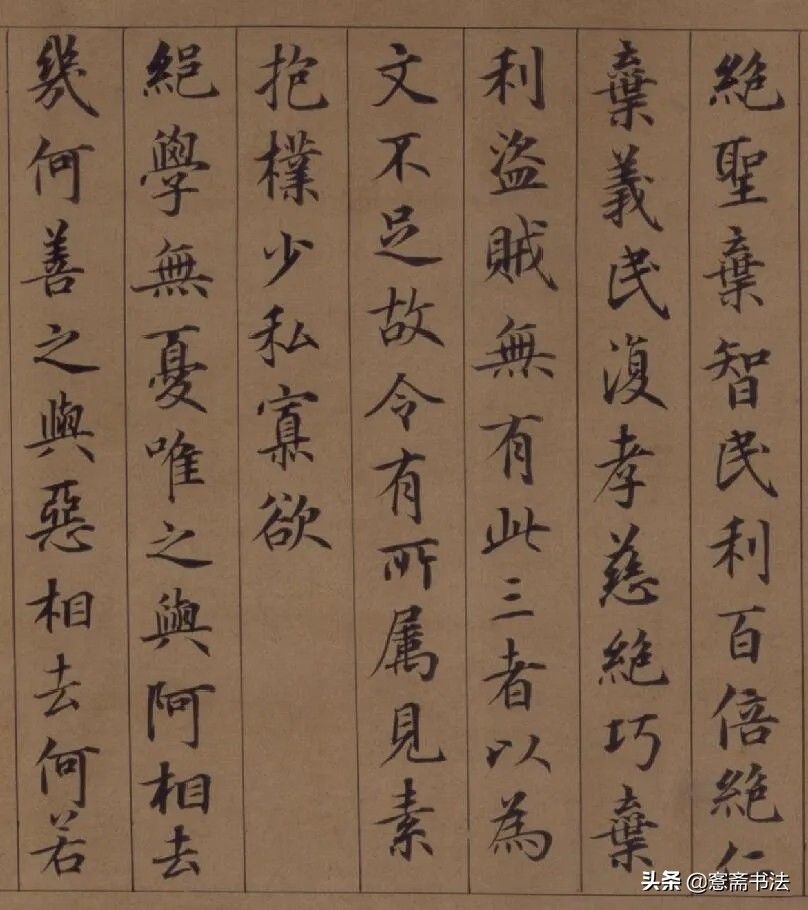 絶聖棄智民利百倍絶仁
棄義民復孝慈絶巧棄
利盜賊無有此三者以為
文不足故令有所属見素
抱樸少私寡欲
絕學無憂唯之與阿相去
幾何善之與惡相去何若
头条 @愙斋书法